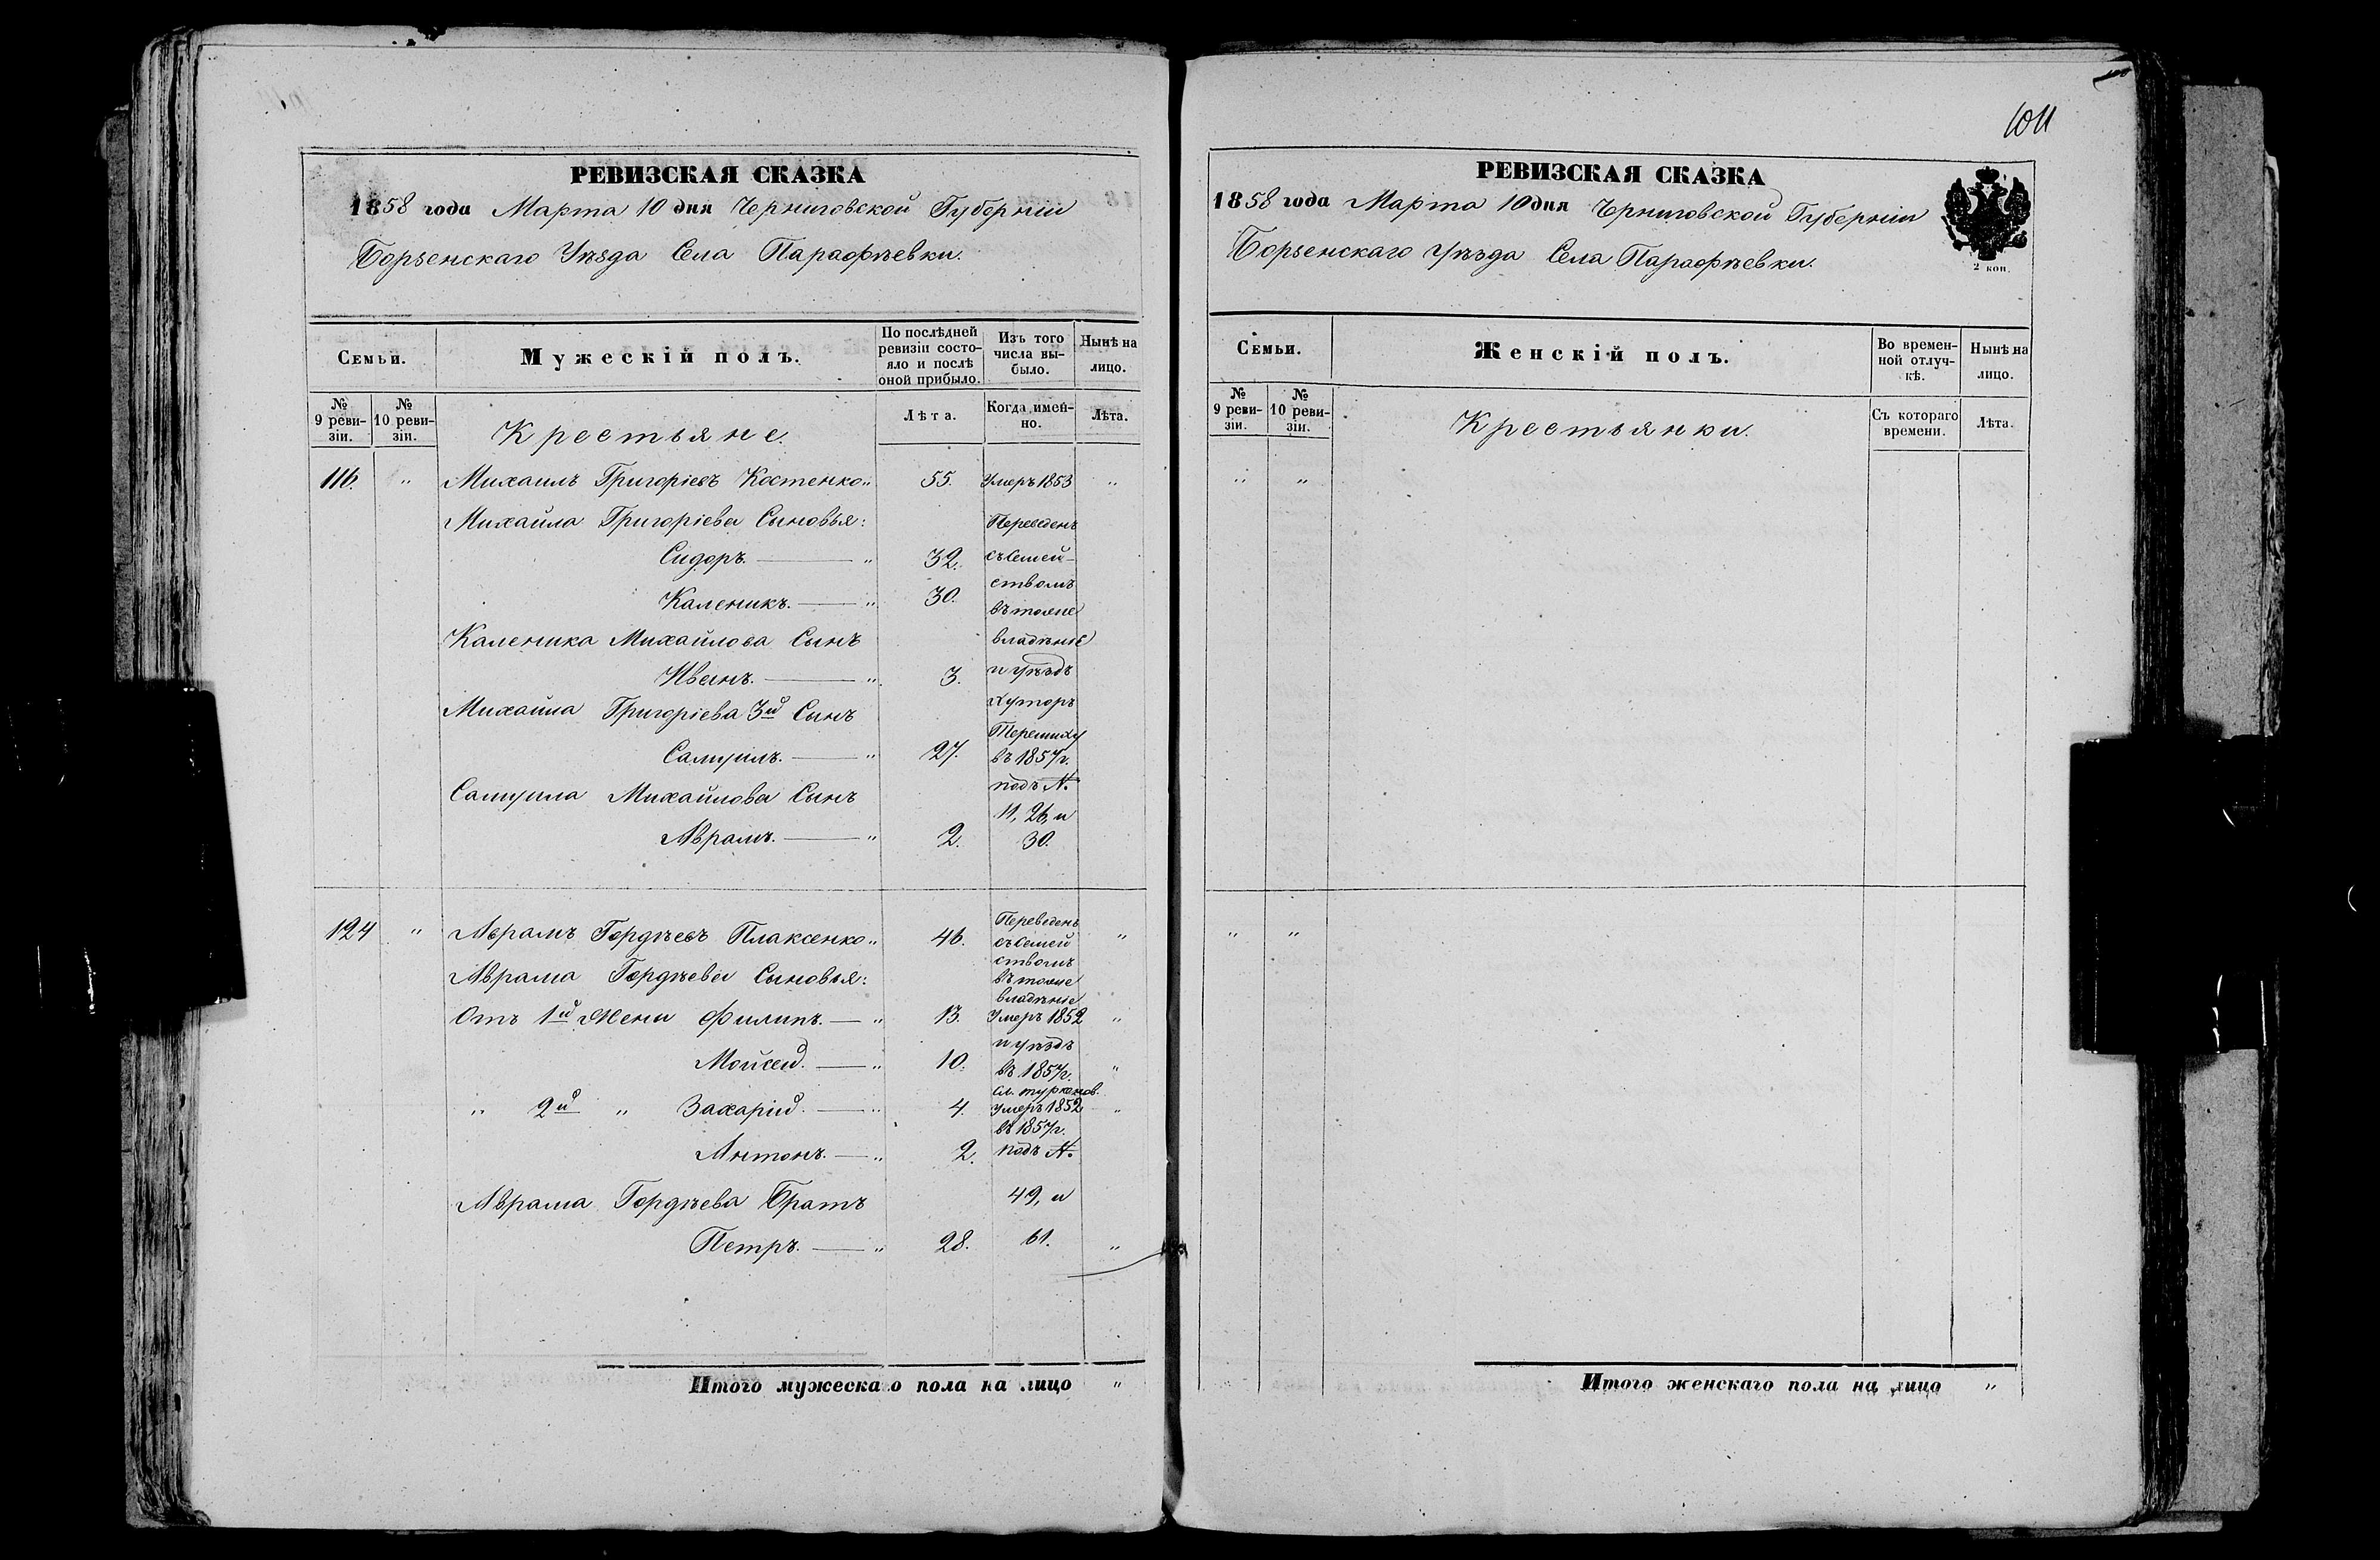 РЕВИЗСКАЯ СКАЗКА
1858 года Марта 10 дня Черниговской Губерніи
Борзенскаго Уѣзда Села Парафѣевки.
Семьи.
Мужескій полъ.
По послѣдней ревизіи состо-
яло и послѣ оной прибыло.
Изъ того числа вы-
было.
Нынѣ на лицо.
№ 9 реви-
зіи.
№ 10 реви-
зіи.
Крестьяне.
Лѣта.
Когда имен-
но.
Лѣта.
116. " Михаилъ Григоріевъ Костенко " 55. Умеръ 1853 "
Михайла Григоріева Сыновья: Переведенъ
Сидоръ. — " 32. съ Семей-
ствомъ
Каленикъ. — " 30. въ тоже
Каленика Михайлова Сынъ владѣніе
Иванъ. — " 3. и уѣздъ
Михайла Григоріева 3й Сынъ Хуторъ
Самуилъ. — " 27. въ 1857 г.
Самуила Михайлова Сынъ подъ №
11, 26, и
Аврамъ. — " 2. 30.
124 " Аврамъ Гордѣевъ Плаксенко " 46. Переведенъ съ Семей "
ствомъ
Аврама Гордѣева Сыновья: въ тоже
владѣніе
Отъ 1й Жены Филипъ. — " 13. Умеръ 1852 "
и уѣздъ
Мойсей. — " 10. въ 1857 г. "
" 2й " Захарій. — " 4. Умеръ 1852 "
въ 1857 г.
Антонъ. — " 2. подъ №
Аврама Гордѣева Братъ 49, и
Петръ. — " 28. 61. "
Итого мужескаго пола на лицо "
1011
РЕВИЗСКАЯ СКАЗКА
1858 года Марта 10 дня Черниговской Губерніи
Борзенскаго Уѣзда Села Парафѣевки.
2 коп.
Семьи.
Женскій полъ.
Во времен-
ной отлуч-
кѣ.
Нынѣ на лицо.
№ 9 реви-
зіи.
№ 10 реви-
зіи.
Крестьянки.
Съ котораго времени.
Лѣта.
" "
" "
Итого женскаго пола на лицо "